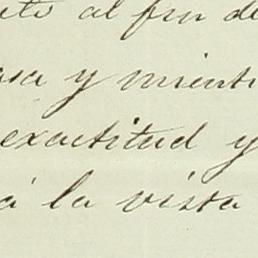 al fin de
y mient
exactitud y
á la vista